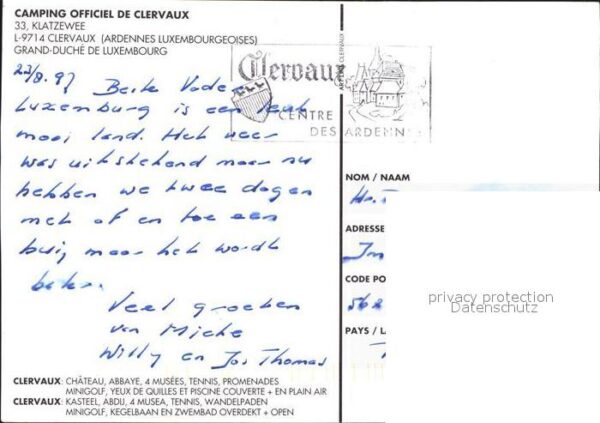 CAMPING OFFICIEL DE CLERVAUX
33, KLATZEWEE
L-9714 CLERVAUX (ARDENNES LUXEMBOURGEOISES)
GRAND-DUCHÉ DE LUXEMBOURG
Clervaux
CENTRE
DES ARDENNES
Beste Vader
Luxemburg is een
mooi land. Het weer
was uitstekend maar nu
hebben we twee dagen
met af en toe een
bui maar het wordt
beter.
Veel groeten
van Mieke
Willy en Jos Thomas
NOM / NAAM
ADRESSE
CODE PO
PAYS / LA
privacy protection
Datenschutz
CLERVAUX: CHÂTEAU, ABBAYE, 4 MUSÉES, TENNIS, PROMENADES
MINIGOLF, YEUX DE QUILLES ET PISCINE COUVERTE + EN PLAIN AIR
CLERVAUX: KASTEEL, ABDIJ, 4 MUSEA, TENNIS, WANDELPADEN
MINIGOLF, KEGELBAAN EN ZWEMBAD OVERDEKT + OPEN